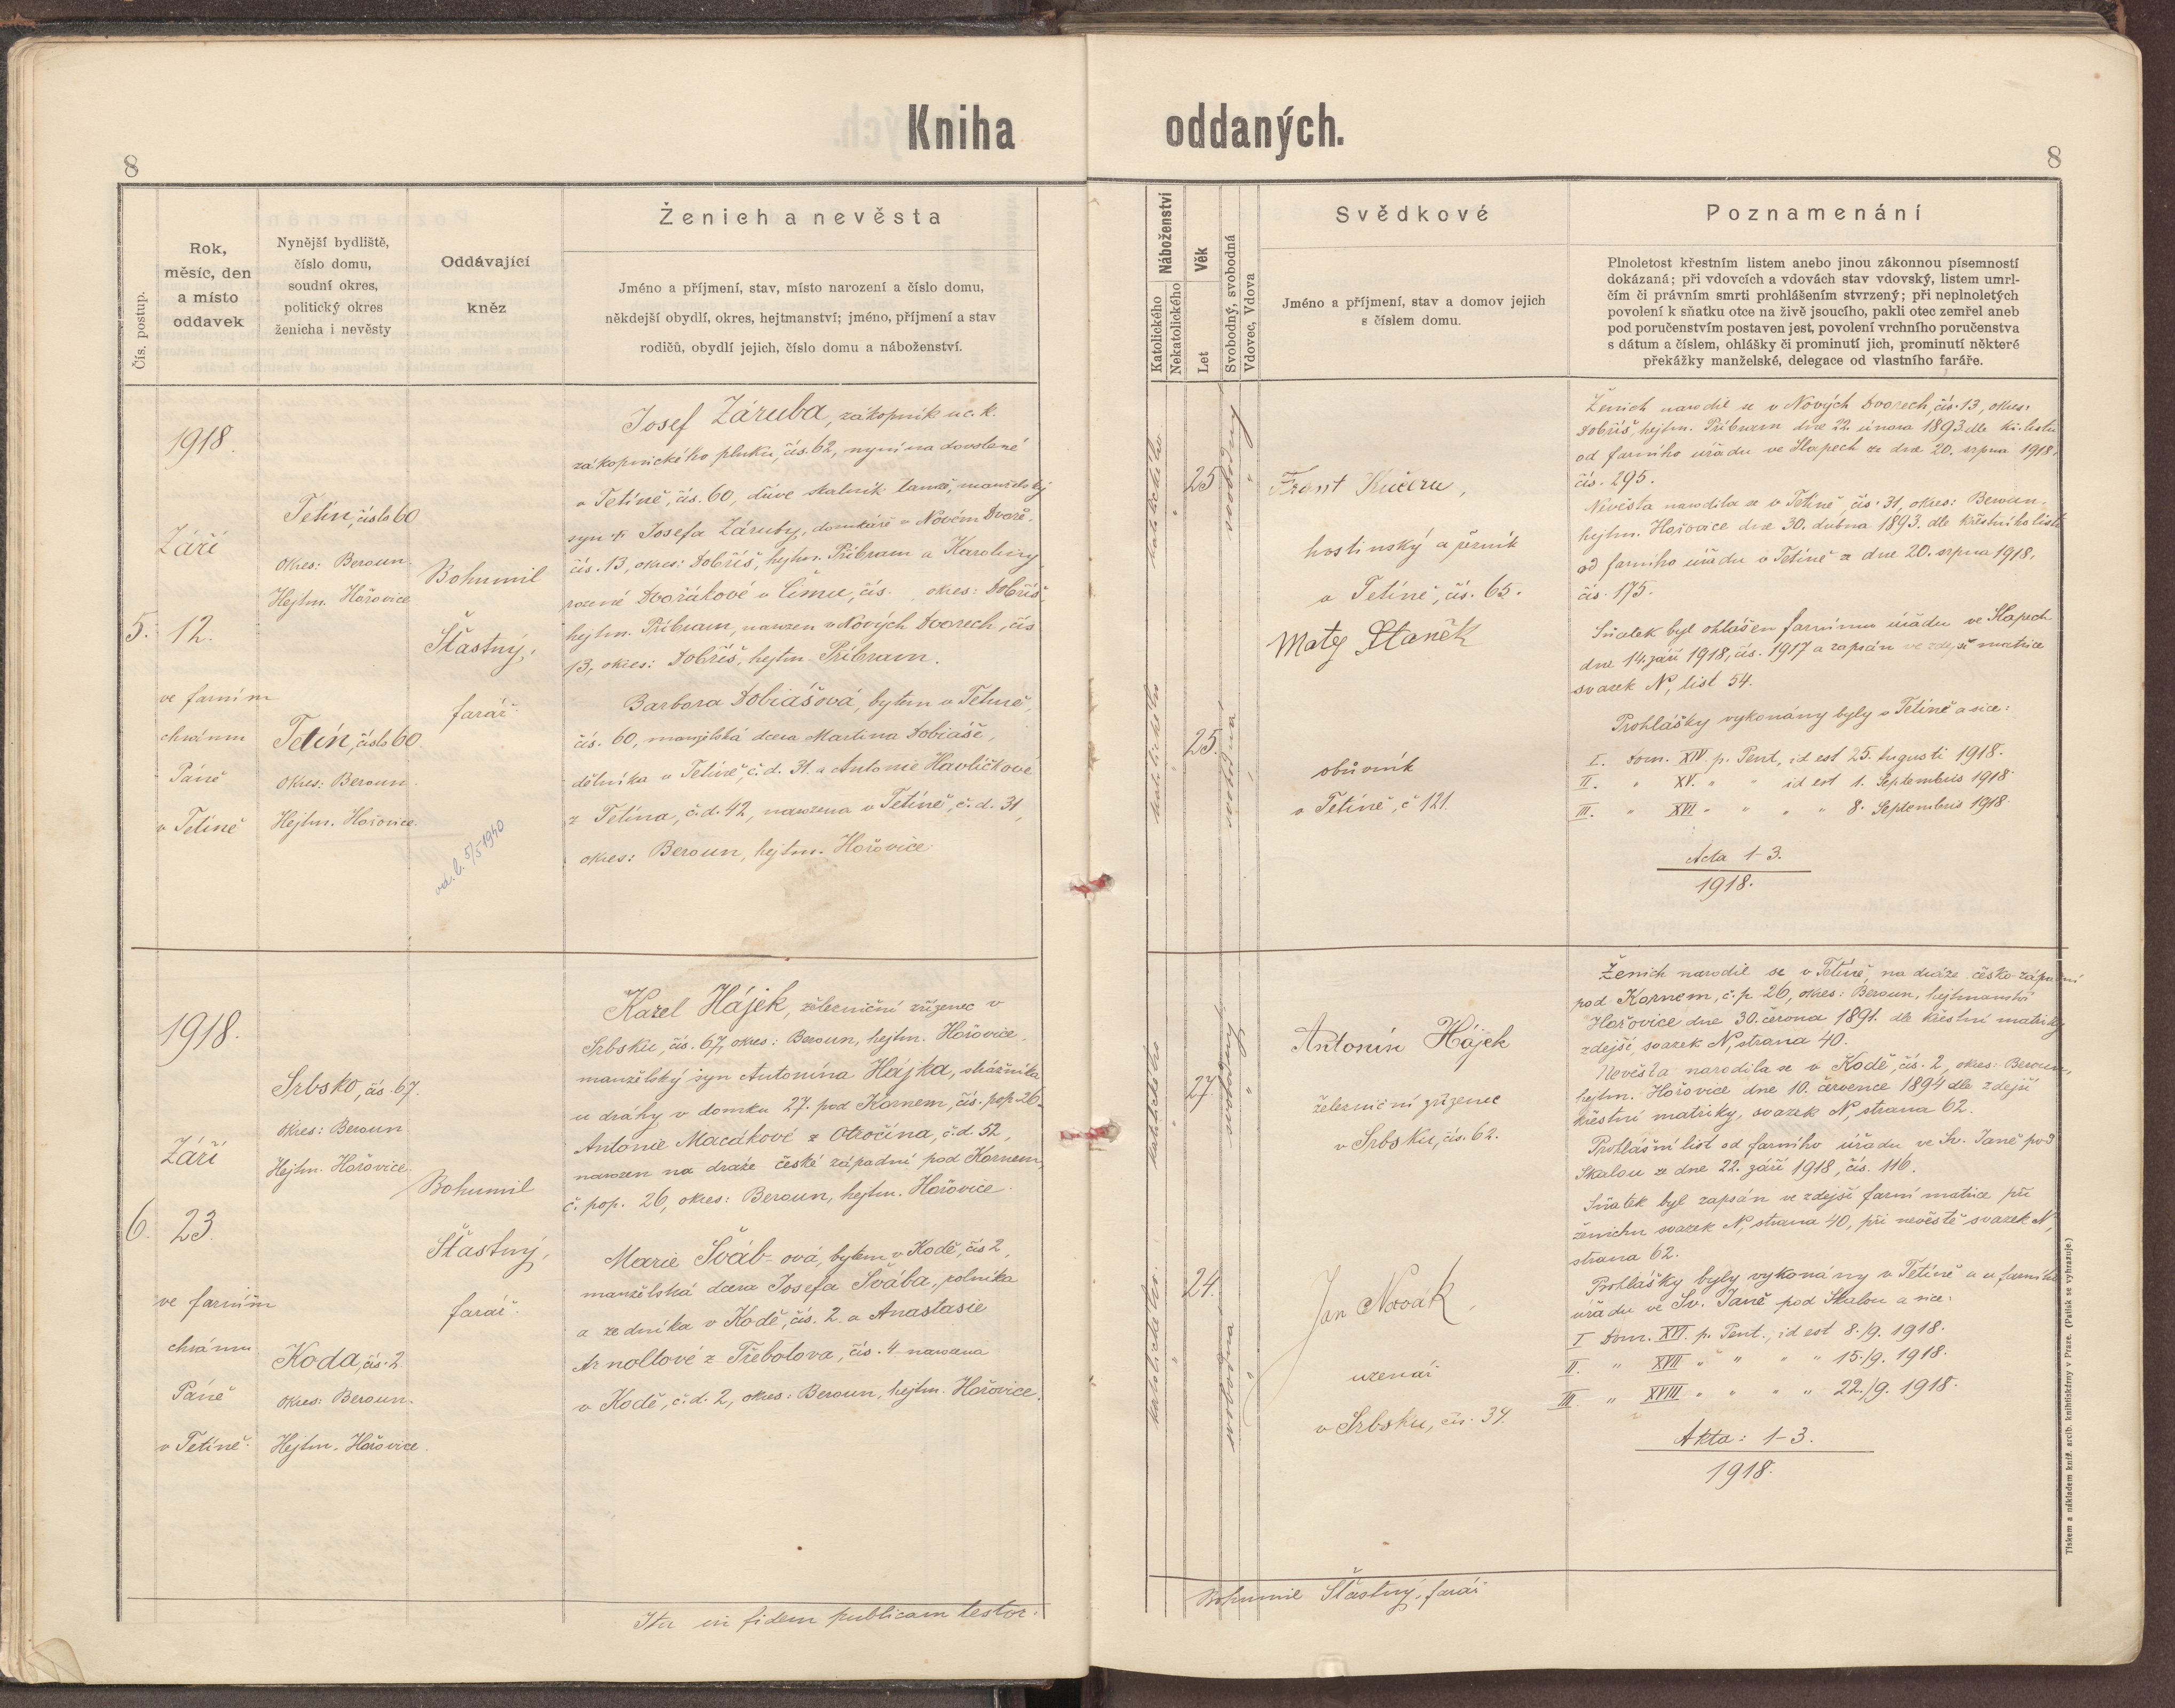 Kniha oddaných.
8
8
Čís. postup.
Rok,
měsíc, den
a místo
oddavek
Nynější bydliště,
číslo domu,
soudní okres,
politický okres
ženicha i nevěsty
Oddávající
kněz
Ženich a nevěsta
Jméno a příjmení, stav, místo narození a číslo domu,
někdejší obydlí, okres, hejtmanství; jméno, příjmení a stav
rodičů, obydlí jejich, číslo domu a náboženství.
Náboženství
Katolického
Nekatolického
Věk
Let
Svobodný, svobodná
Vdovec, Vdova
Svědkové
Jméno a příjmení, stav a domov jejich
s číslem domu.
Poznamenání
Plnoletost křestním listem anebo jinou zákonnou písemností
dokázaná; při vdovcích a vdovách stav vdovský, listem umrl-
čím či právním smrti prohlášením stvrzený; při neplnoletých
povolení k sňatku otce na živě jsoucího, pakli otec zemřel aneb
pod poručenstvím postaven jest, povolení vrchního poručenstva
s dátum a číslem, ohlášky či prominutí jich, prominutí některé
překážky manželské, delegace od vlastního faráře.
5.
1918.
Září
12.
ve farním
chrámu
Páně
v Tetíně
Tetín, číslo 60
okres: Beroun.
Hejtm. Hořovice
Tetín, číslo 60.
okres: Beroun.
Hejtm. Hořovice.
Bohumil
Šťastný,
farář.
5/5 1940
Josef Záruba, zákopník u c. k.
zákopnického pluku, čís. 62, nyní na dovolené
v Tetíně, čís. 60, dříve skalník tamž, manželský
syn † Josefa Záruby, domkáře v Novém Dvoře,
čís. 13, okres: Dobříš, hejtm. Příbram a Karoliny
rozené Dvořákové z čís. , okres: Dobříš,
hejtm. Příbram, narozen v Nových Dvorech, čís.
13, okres: Dobříš, hejtm. Příbram.
Barbora Dobiášová, bytem v Tetíně,
čís. 60, manželská dcera Martina Dobiáše,
dělníka v Tetíně, č. d. 31. a Antonie Havlíčkové
z Tetína, č. d. 42, narozena v Tetíně, č. d. 31,
okres: Beroun, hejtm. Hořovice
katolického
"
25
svobodný
"
katolického
25.
svobodná
Frant Kučera,
hostinský a řezník
v Tetíně, čís. 65.
Matěj Staněk
obuvník
v Tetíně, č 121.
Ženich narodil se v Nových Dvorech, čís. 13, okres:
Dobříš, hejtm. Příbram dne 22. února 1893. dle kř. listu
od farního úřadu ve Slapech ze dne 20. srpna 1918.
čís. 295.
Nevěsta narodila se v Tetíně, čís. 31, okres: Beroun.
hejtm. Hořovice dne 30. dubna 1893. dle křestního listu
od farního úřadu v Tetíně z dne 20. srpna 1918.
čís. 175.
Sňatek byl ohlášen farnímu úřadu ve Slapech
dne 14. září 1918, čís. 1917 a zapsán ve zdejší matrice
svazek N, list 54.
Prohlášky vykonány byly v Tetíně a sice:
I. Dom. XIV. p. Pent, id est 25. Augusti 1918.
II. " XV. " " id est 1. Septembris 1918.
III. " XVI. " " " " 8. Septembris 1918.
Acta 1-3.
1918.
6.
1918.
Září
23.
ve farním
chrámu
Páně
v Tetíně.
Srbsko, čís. 67.
okres: Beroun.
Hejtm. Hořovice.
Koda, čís. 2.
okres: Beroun.
Hejtm. Hořovice.
Bohumil
Šťastný,
farář.
Karel Hájek, železniční zřízenec v
Srbsku, čís. 67, okres: Beroun, hejtm. Hořovice,
manželský syn Antonína Hájka, strážníka
u dráhy v domku 27. pod Kornem, čís. pop. 26. a
Antonie Macákové z Otročína, č. d. 52,
narozen na dráze české západní pod Kornem,
č. pop. 26, okres: Beroun, hejtm. Hořovice.
Marie Šváb-ová, bytem v Kodě, čís 2,
manželská dcera Josefa Švába, rolníka
a zedníka v Kodě, čís. 2. a Anastasie
Arnoltové z Třebotova, čís. 4 narozena
v Kodě, č. d. 2, okres: Beroun, hejtm. Hořovice.
katolického
"
27.
svobodný
"
katolického.
"
24.
svobodná
"
Antonín Hájek
železniční zřízenec
v Srbsku, čís. 62.
Jan Novák,
uzenář
v Srbsku, čís. 34.
Ženich narodil se v Tetíně, na dráze česko-západní
pod Kornem, č. p. 26, okres: Beroun, hejtmanství
Hořovice dne 30. června 1891. dle křestní matriky
zdejší, svazek N, strana 40.
Nevěsta narodila se v Kodě, čís. 2, okres: Beroun,
hejtm. Hořovice dne 10. července 1894 dle zdejší
křestní matriky, svazek N, strana 62.
Prohlášní list od farního úřadu ve Sv. Janě pod
Skalou ze dne 22. září 1918, čís. 116.
Sňatek byl zapsán ve zdejší farní matrice při
ženichu svazek N, strana 40, při nevěstě svazek N,
strana 62.
Prohlášky byly vykonány v Tetíně a u farního
úřadu ve Sv. Janě pod Skalou a sice:
I Dom. XVI. p. Pent., id est 8./9. 1918.
II. " XVII " " " " 15./9. 1918.
III " XVIII " " " " 22./9. 1918.
Akta: 1-3.
1918.
Ita in fidem publicam testor:
Bohumil Šťastný, farář
Tiskem a nákladem kníž. arcib. knihtiskárny v Praze. (Patisk se vyhrazuje.)